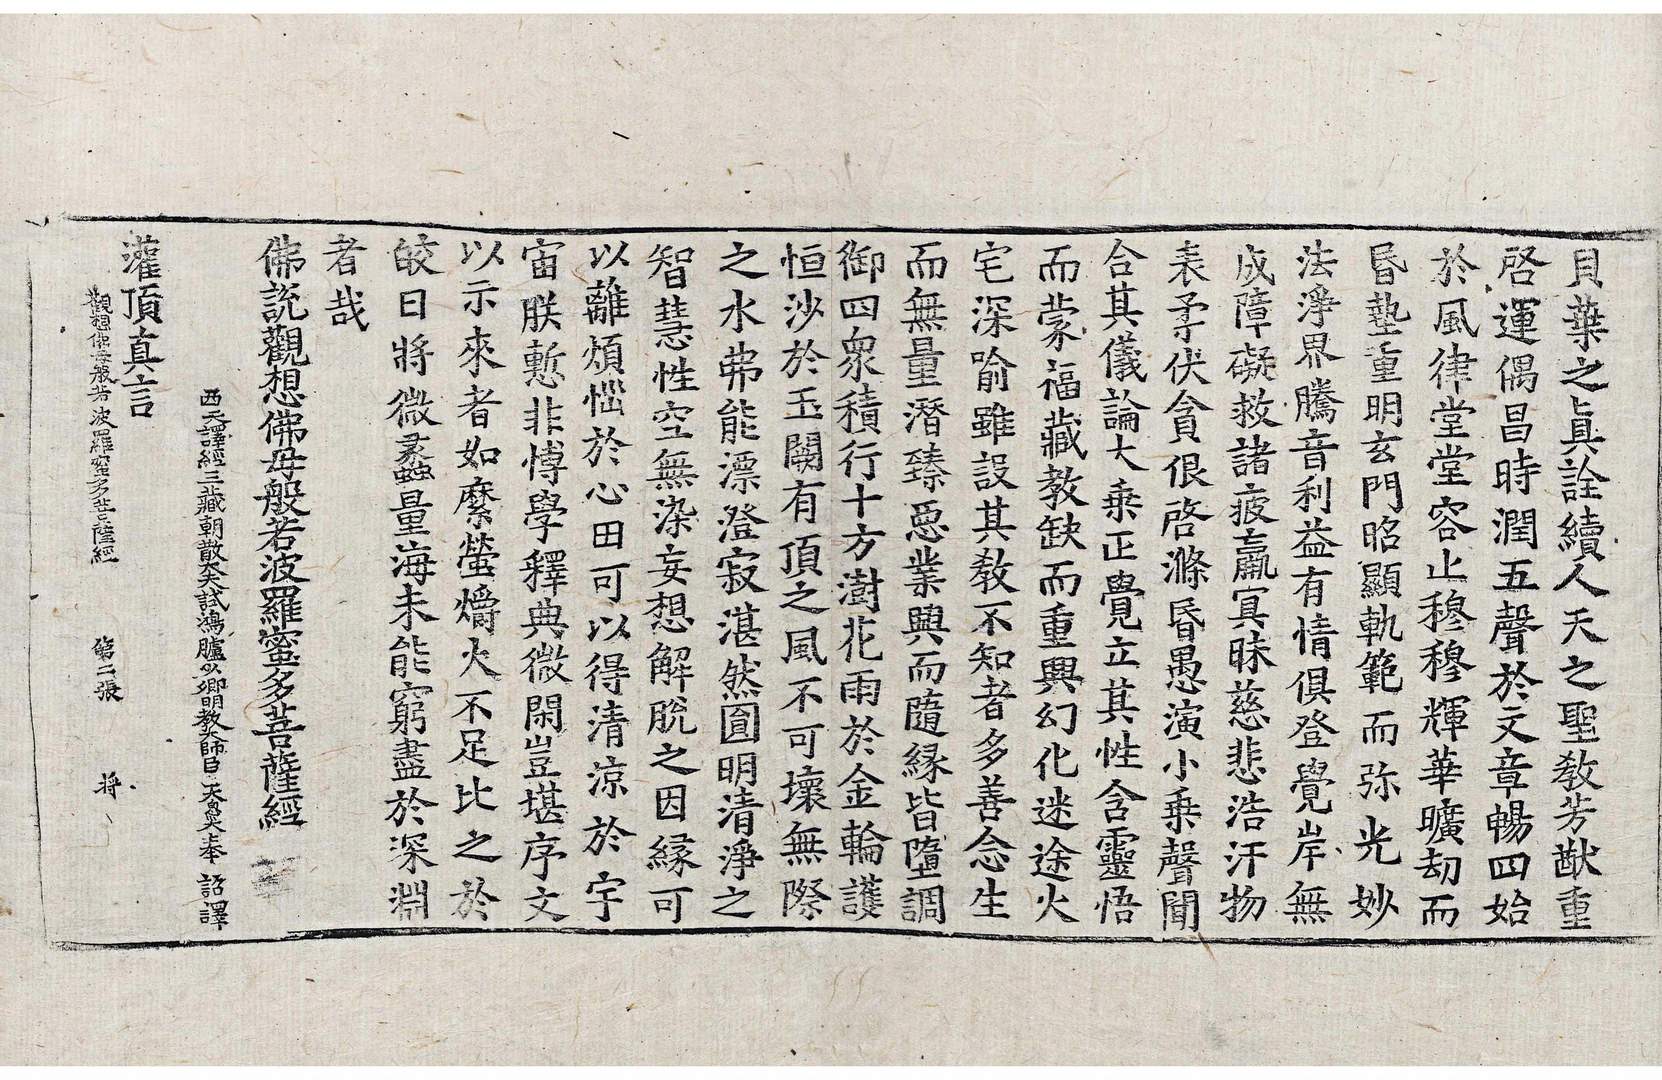 貝葉之眞詮續人天之聖教芳猷重
啓運偶昌時潤五聲於文章暢四始
於風律堂堂容止穆穆輝華曠劫而
昏墊重明玄門昭顯軌範而弥光妙
法淨界騰音利益有情俱登覺岸無
成障礙救諸疲羸冥昧慈悲浩汗物
表柔伏貪很啓滌昏愚演小乗聲聞
合其儀論大乗正覺立其性含靈悟
而蒙福藏教缺而重興幻化迷途火
宅深喻雖設其教不知者多善念生
而無量潛臻惡業興而隨緣皆墮調
御四衆積行十方澍花雨於金輪護
恒沙於玉闕有頂之風不可壞無際
之水弗能漂澄寂湛然圓明清淨之
智慧性空無染妄想解脫之因緣可
以離煩惱於心田可以得清涼於宇
宙朕慙非博學釋典微閑豈堪序文
以示來者如縻螢爝火不足比之於
皎日將微蠡量海未能窮盡於深淵
者哉
佛説觀想佛母般若波羅蜜多菩薩經
西天譯經三藏朝散大夫試鴻臚少卿明教大師臣天息災奉 詔譯
灌頂真言
觀想佛母般若波羅蜜多菩薩經 第二張 将